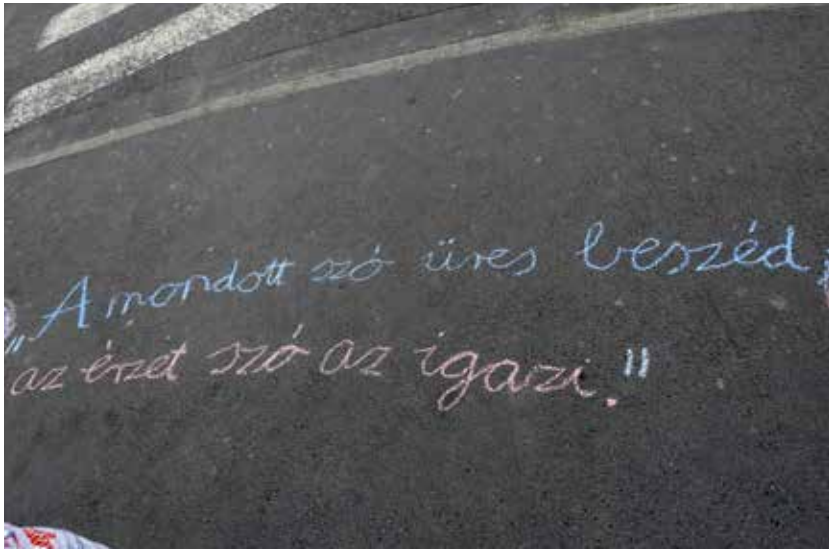 „A mondott szó üres beszéd,
az érzet szó az igazi."